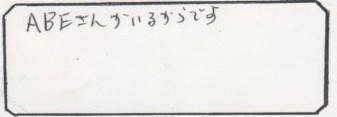 ABEさんがいるからです